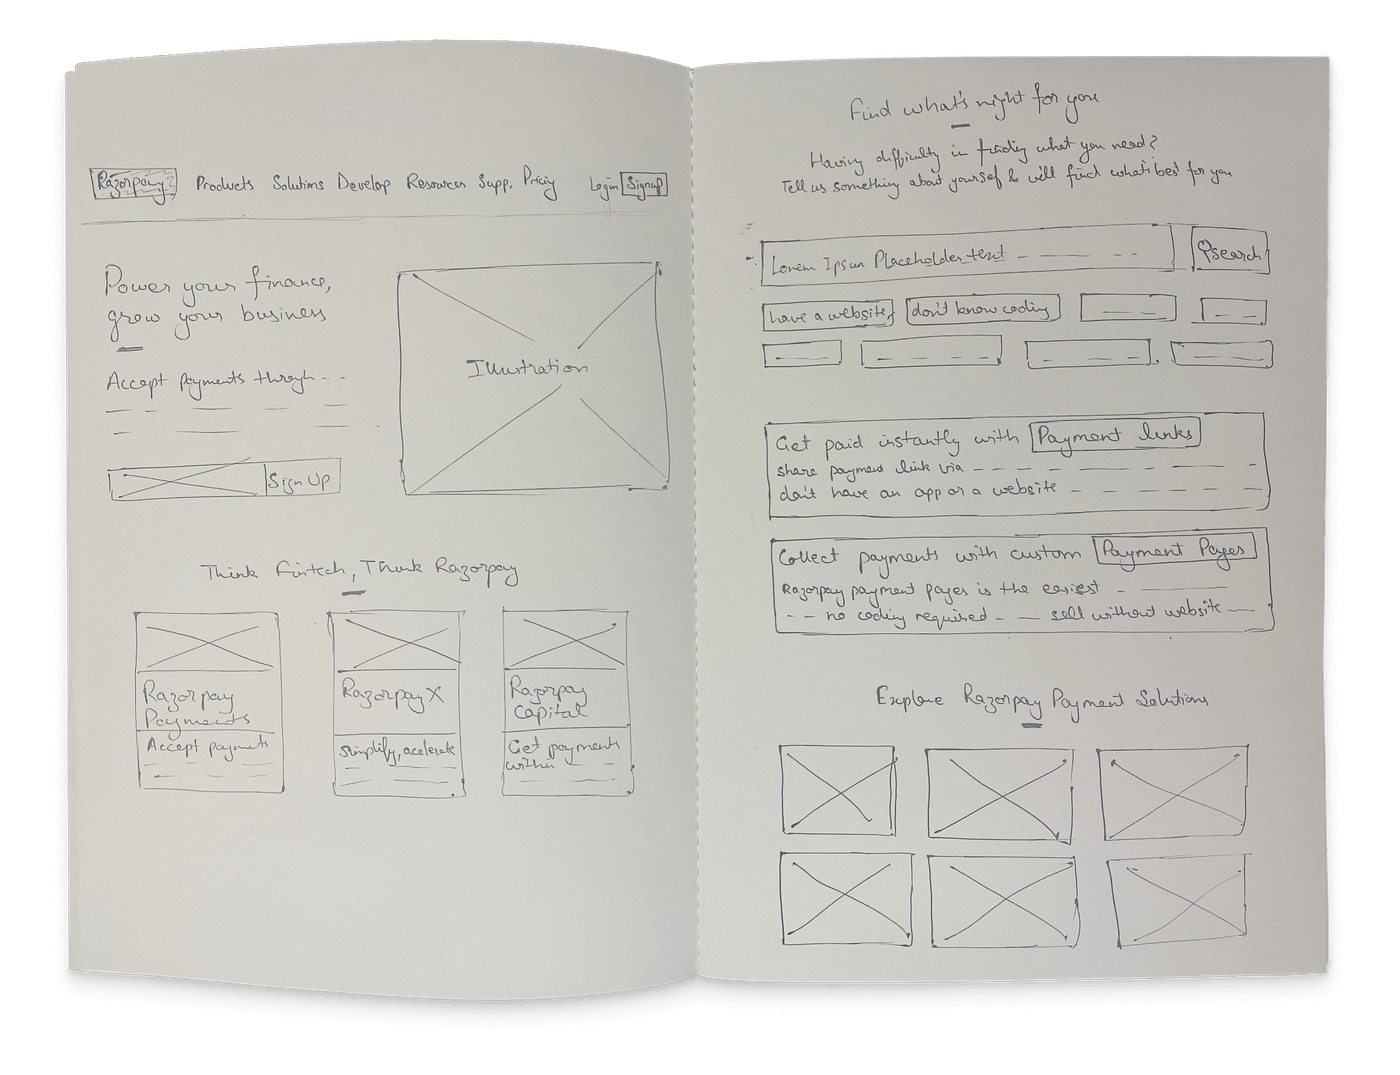 Razorpay Products Solutions Develop Resources Supp. Pricing Login Signup
Power your finance,
grow your business
Accept payments through - -
Sign Up
Illustration
Think Fintech, Think Razorpay
Razorpay
Payments
Accept payments
RazorpayX
Simplify, acelerate
Razorpay
Capital
Get payments
within
Find what's right for you
Having difficulty in finding what you need?
Tell us something about yourself & will find what's best for you
Lorem Ipsum Placeholder text - - - -
search
have a website, don't know coding
Get paid instantly with Payment links
share payment link via - - -
don't have an app or a website - - -
Collect payments with custom Payment Pages
Razorpay payment pages is the easiest -
- - no coding required - - sell without website -
Explore Razorpay Payment Solutions